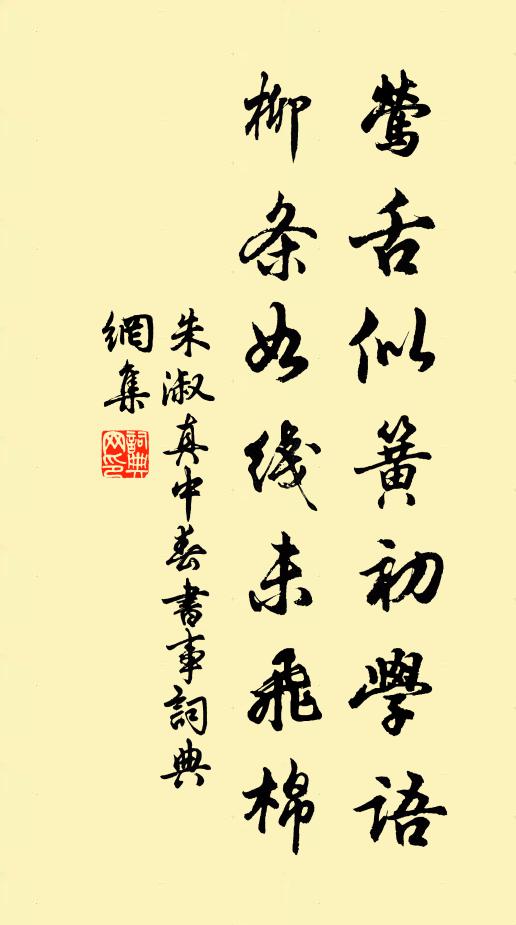 鶯舌似簧初學語
柳条如綫未飛棉
朱淑真中春書事詞典
網集
詞典網印